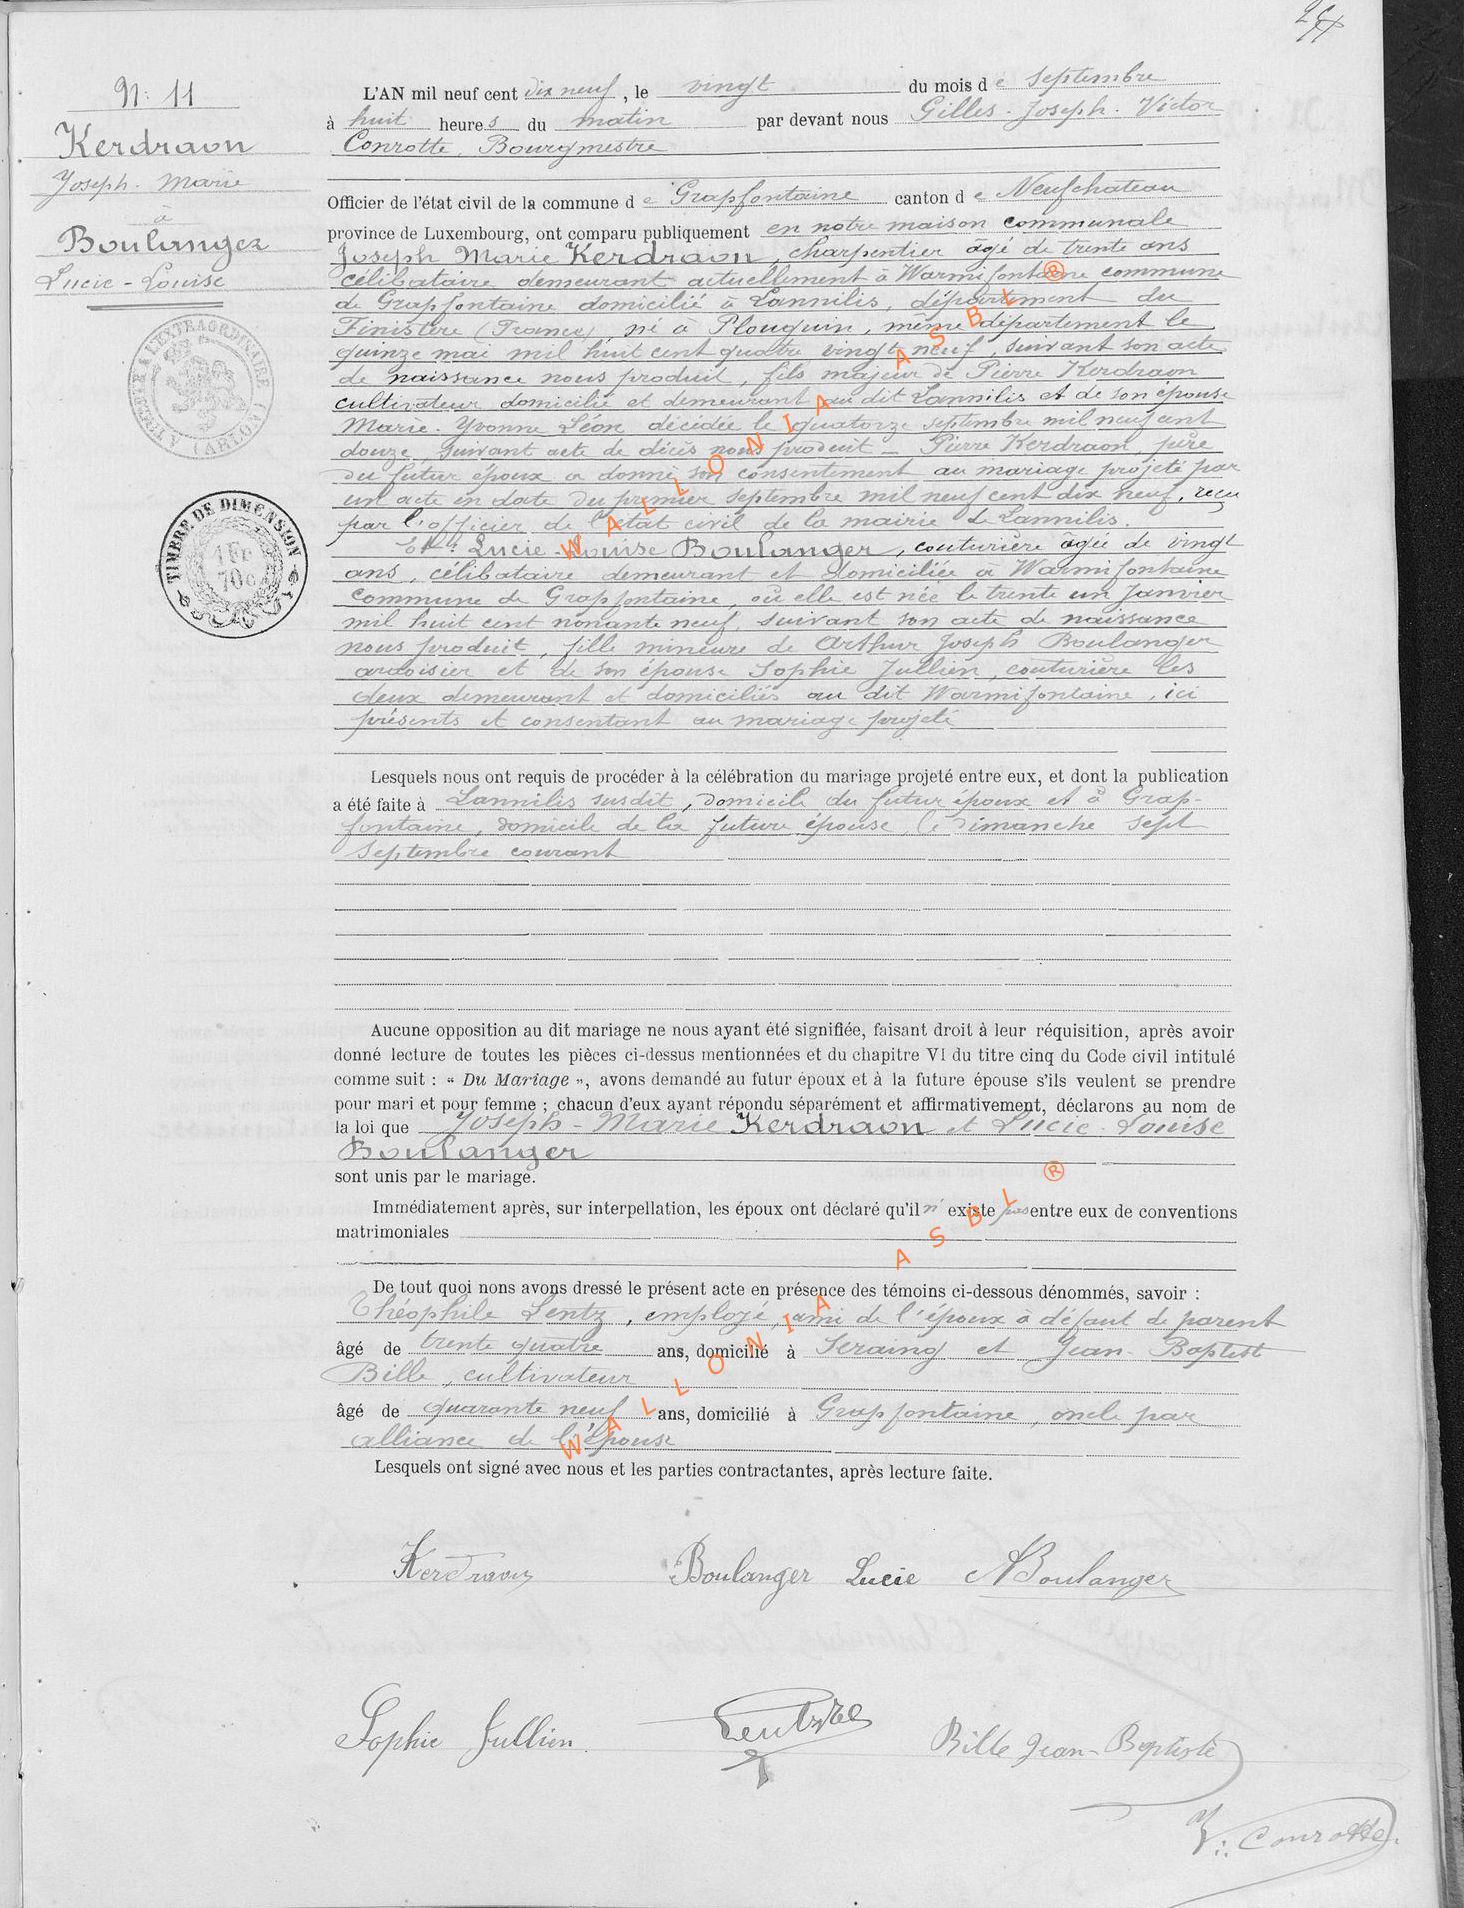 N: 11
Kerdraon
Joseph-Marie
à
Boulanger
Lucie-Louise
TIMBRE À L'EXTRAORDINAIRE
(ARLON)
TIMBRE DE DIMENSION
1 Fr
70 c
L'AN mil neuf cent dix neuf, le vingt du mois de septembre
à huit heures du matin par devant nous Gilles-Joseph-Victor
Conrotte, Bourgmestre
Officier de l'état civil de la commune de Grapfontaine canton de Neufchateau
province de Luxembourg, ont comparu publiquement en notre maison communale
Joseph Marie Kerdraon, charpentier âgé de trente ans
célibataire demeurant actuellement à Warmifontaine commune
de Grapfontaine domicilié à Lannilis, département du
Finistère (France), né à Plouguin, même département le
quinze mai mil huit cent quatre vingt neuf, suivant son acte
de naissance nous produit, fils majeur de Pierre Kerdraon
cultivateur domicilié et demeurant au dit Lannilis et de son épouse
Marie-Yvonne Léon décédée le quatorze septembre mil neuf cent
douze, suivant acte de décès nous produit — Pierre Kerdraon père
du futur époux a donné son consentement au mariage projeté par
un acte en date du premier septembre mil neuf cent dix neuf, reçu
par l'officier de l'état civil de la mairie de Lannilis.
Et Lucie-Louise Boulanger, couturière âgée de vingt
ans, célibataire demeurant et domiciliée à Warmifontaine
commune de Grapfontaine, où elle est née le trente un janvier
mil huit cent nonante neuf, suivant son acte de naissance
nous produit, fille mineure de Arthur Joseph Boulanger
ardoisier et de son épouse Sophie Jullien, couturière les
deux demeurant et domiciliés au dit Warmifontaine, ici
présents et consentant au mariage projeté
Lesquels nous ont requis de procéder à la célébration du mariage projeté entre eux, et dont la publication
a été faite à Lannilis susdit, domicile du futur époux et à Grap-
fontaine, domicile de la future épouse, le dimanche sept
septembre courant
Aucune opposition au dit mariage ne nous ayant été signifiée, faisant droit à leur réquisition, après avoir
donné lecture de toutes les pièces ci-dessus mentionnées et du chapitre VI du titre cinq du Code civil intitulé
comme suit : « Du Mariage », avons demandé au futur époux et à la future épouse s'ils veulent se prendre
pour mari et pour femme ; chacun d'eux ayant répondu séparément et affirmativement, déclarons au nom de
la loi que Joseph-Marie Kerdraon et Lucie-Louise
Boulanger
sont unis par le mariage.
Immédiatement après, sur interpellation, les époux ont déclaré qu'il n'existe pas entre eux de conventions
matrimoniales
De tout quoi nons avons dressé le présent acte en présence des témoins ci-dessous dénommés, savoir :
Théophile Lentz, employé, ami de l'époux à défaut de parent
âgé de trente quatre ans, domicilié à Seraing et Jean-Baptist
Bille, cultivateur
âgé de quarante neuf ans, domicilié à Grapfontaine, oncle par
alliance de l'épouse
Lesquels ont signé avec nous et les parties contractantes, après lecture faite.
Kerdraon Boulanger Lucie ABoulanger
Sophie Jullien Bille Jean-Baptiste
V. Conrotte
WALLONIA ASBL ®
WALLONIA ASBL ®